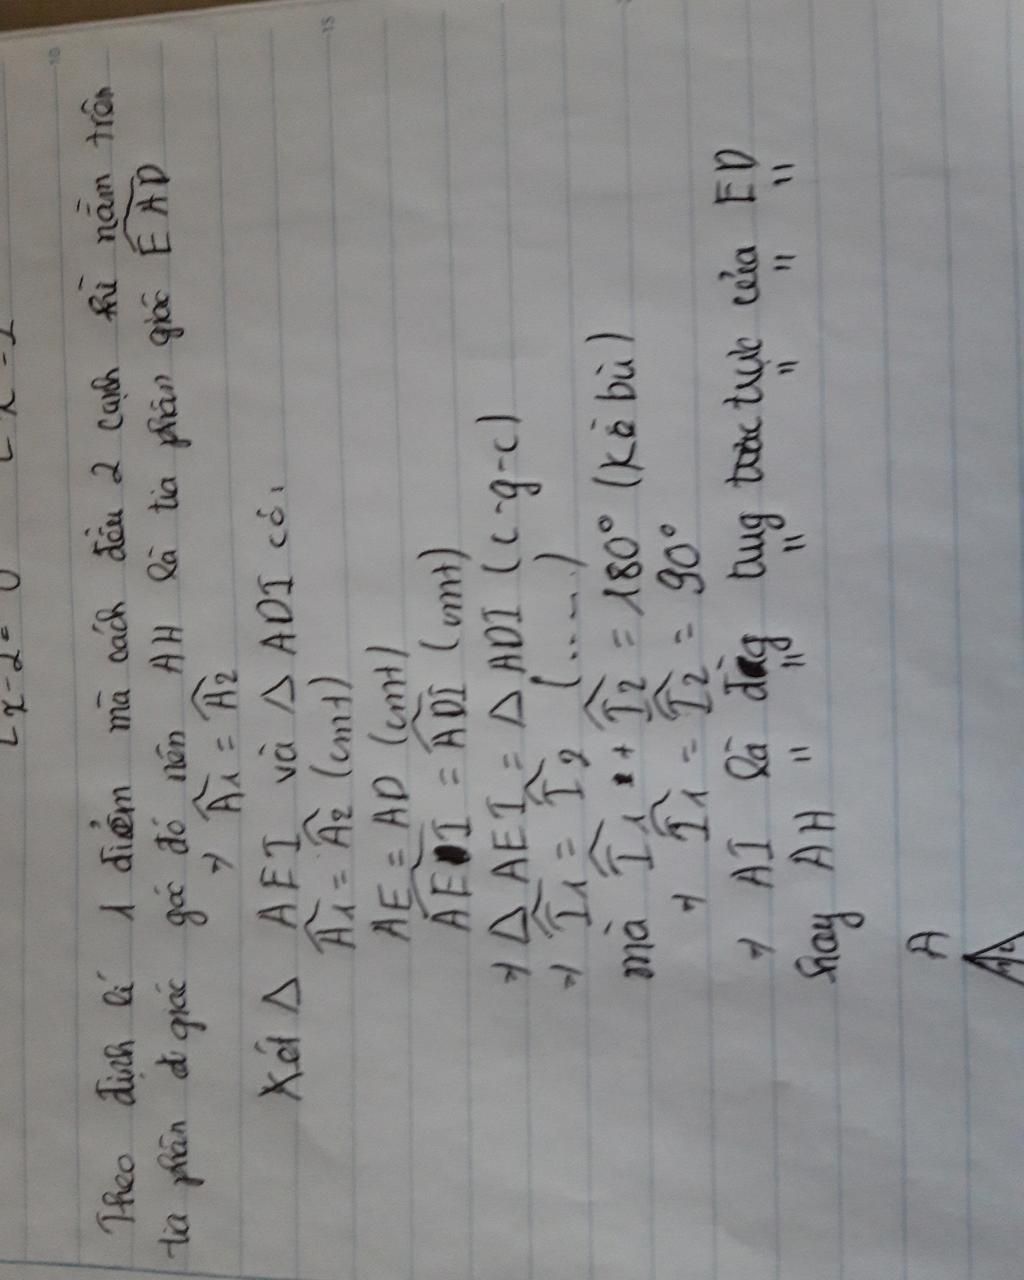 x-2=0
Theo định lí 1 điểm mà cách đều 2 cạnh thì nằm trên
tia phân giác góc đó nên AH là tia phân giác EAD
⇒ A1 = A2
Xét Δ AEI và Δ ADI có:
A1 = A2 (cmt)
AE = AD (cmt)
AEI = ADI (cmt)
⇒ Δ AEI = Δ ADI (c-g-c)
⇒ I1 = I2 (.....)
mà I1 + I2 = 180° (kề bù)
⇒ I1 = I2 = 90°
⇒ AI là đg tug trực của ED
hay AH " " " " " "
A